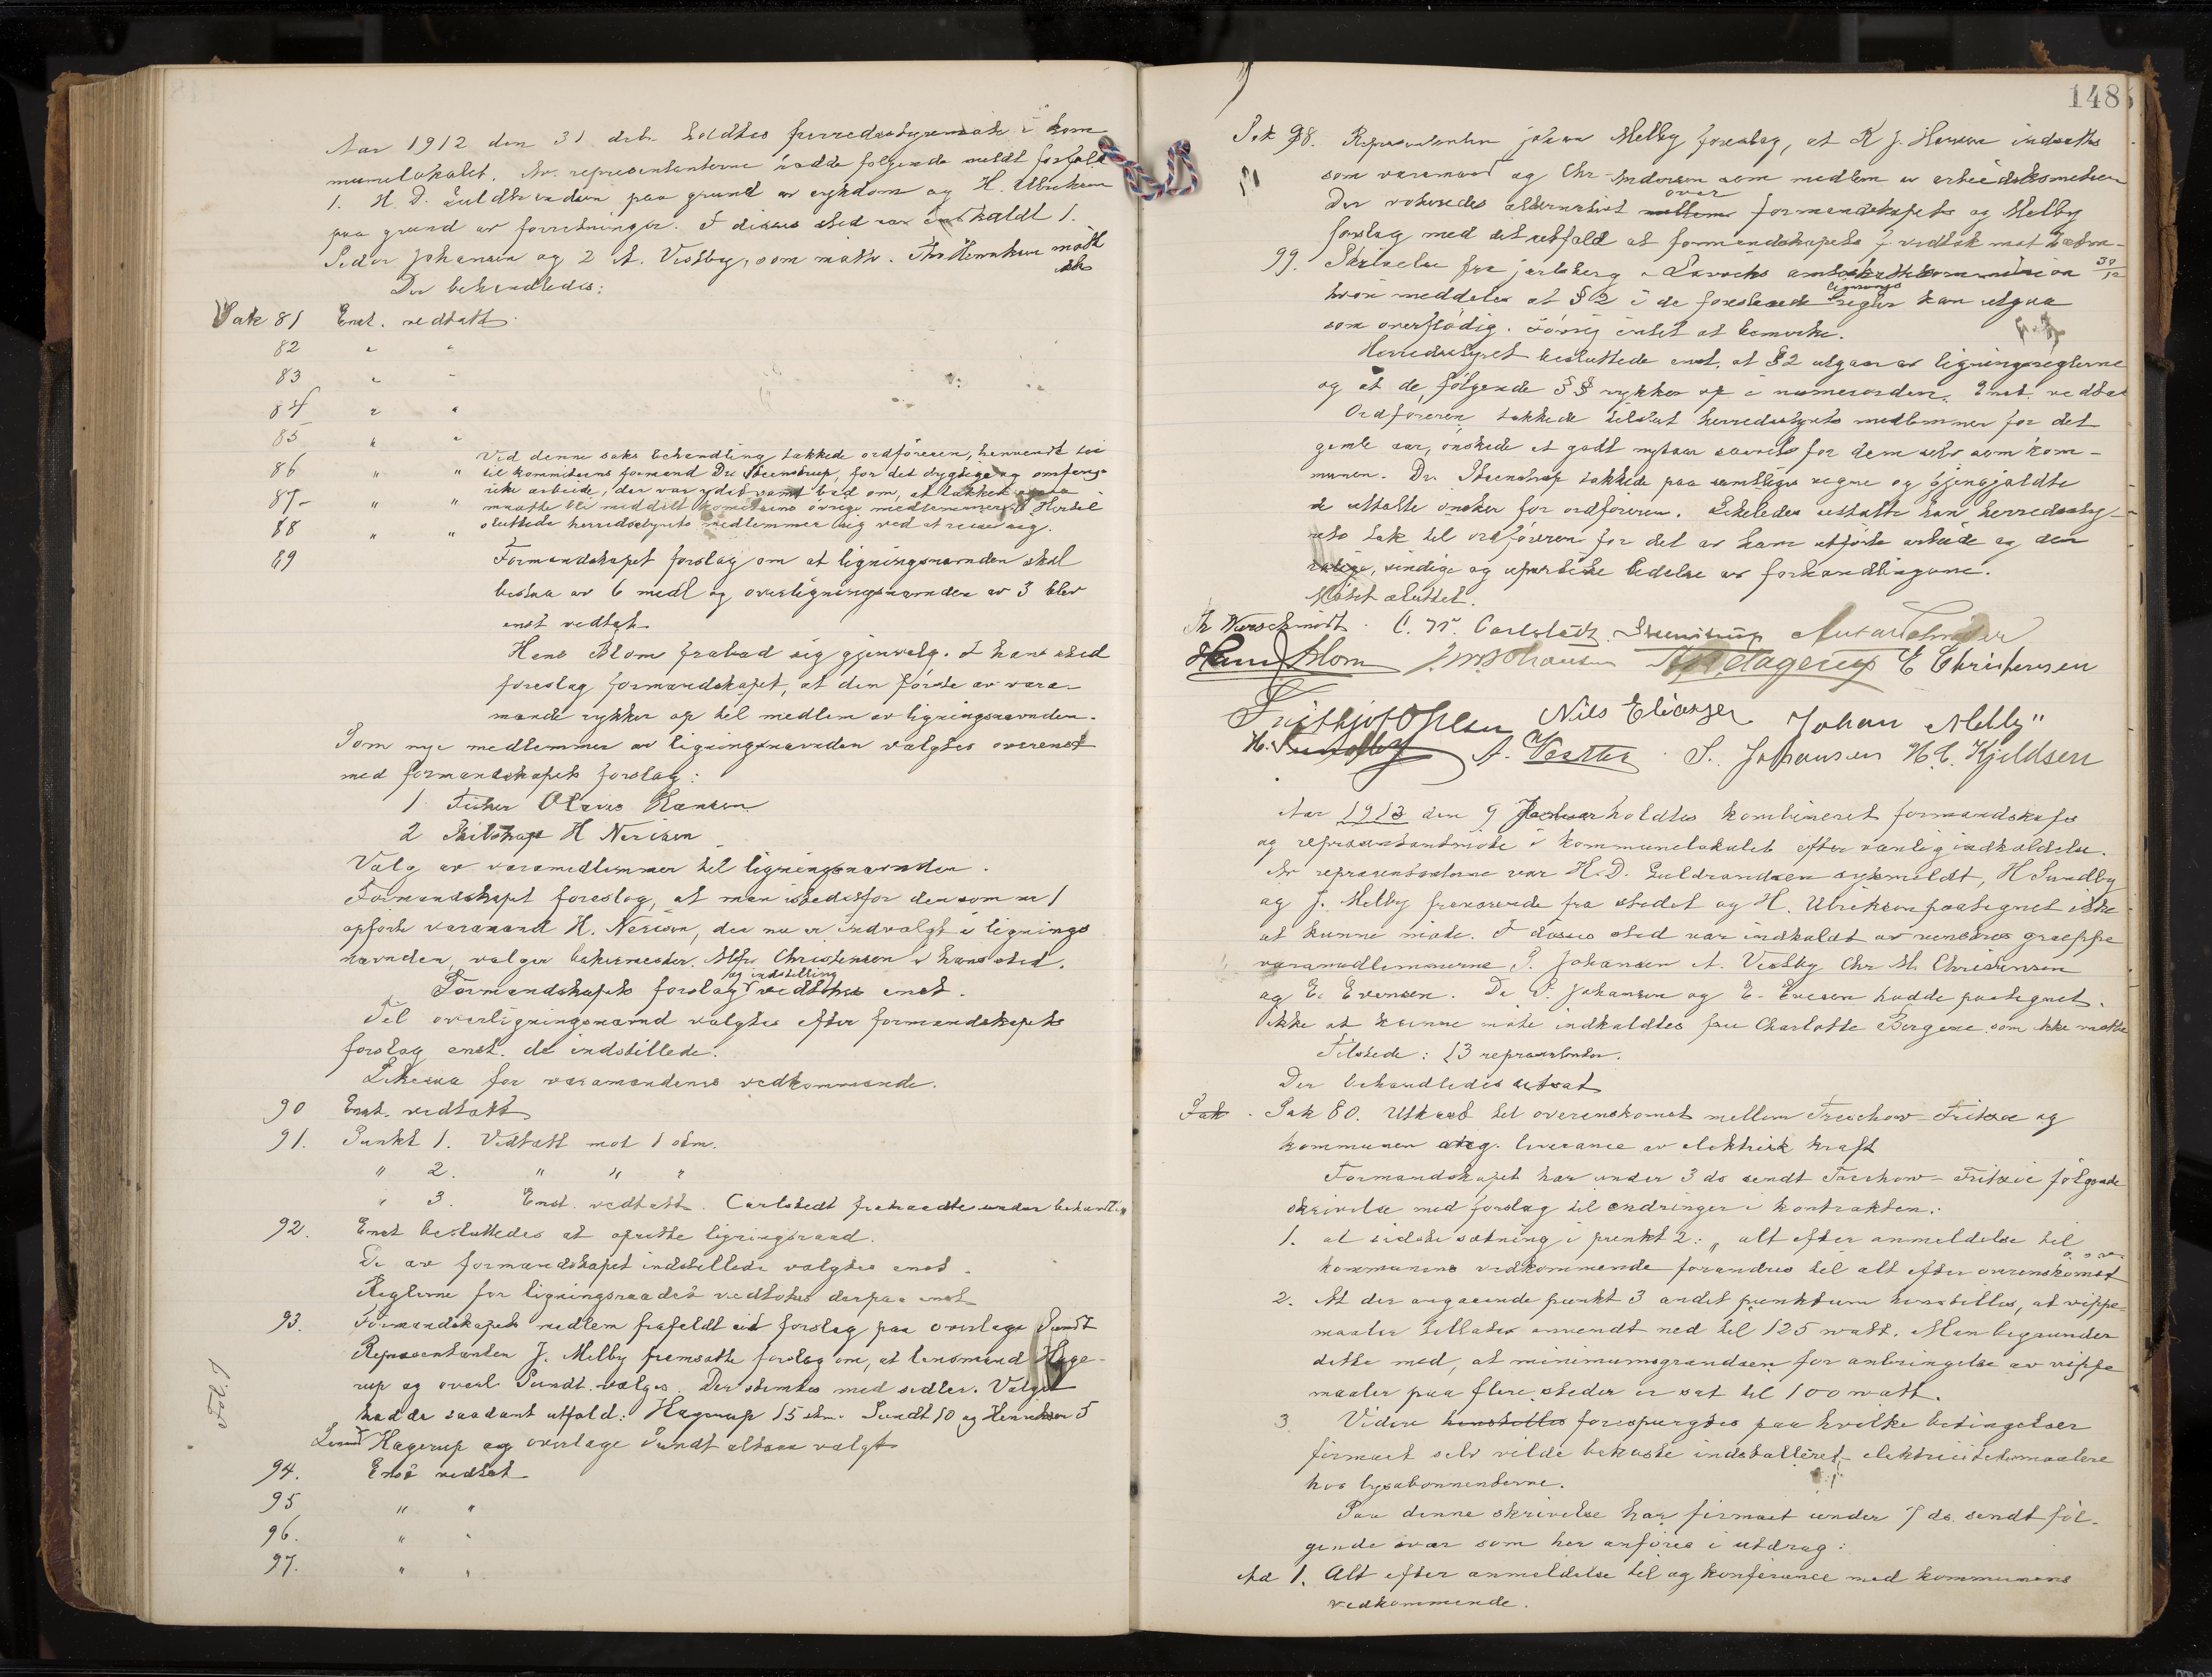 Aar 1912 den 31 decbr. holdtes herredsstyremøte i kom-
munelokalet. Av repræsentanterne hadde følgende meldt forfald
1. H. D. Guldbrandsen paa grund av sykdom og H. Ulriksen
paa grund av forretninger. I disses sted var indkaldt 1.
Peder Johansen og 2 A. Vestby, som møtte. Ths Henriksen møtte
ikke
Der behandledes:
Sak 81 Enst. vedtatt
82 " "
83 " "
84 " "
85 " "
Ved denne saks behandling takkede ordføreren, henvendt
86 " " til komiteens formand Dr. Steenstrup, for det dygtige og omfangs-
rike arbeide, der var ydet samt bad om, at takken ogsaa
87 " " maatte bli meddelt komiteens øvrige medlemmer. Hertil
88 " " sluttede herredsstyrets medlemmer sig ved at reise sig.
89 Formandskapet forslag om at ligningsnævnden skal
bestaa av 6 medl og overligningsnævnden av 3 blev
enst vedtat.
Hans Blom frabad sig gjenvalg. I hans sted
foreslog formandskapet, at den første av vara-
mænd rykker op til medlem av ligningsnævnden.
Som nye medlemmer av ligningsnævnden valgtes overenst
med formandskapets forslag:
1 Fisker Olavus Hansen
2 Skibskap H Nerisen
Valg av varamedlemmer til ligningsnævnden.
Formandskapet foreslog, at man istedetfor den som nr 1
opførte varamand H. Nerisen, der nu er indvalgt i lignings
nævnden, valger bakermester Alfr. Christensen i hans sted.
og indstilling
Formandskapets forslag vedtokes enst.
Til overligningsnævnd valgtes efter formandskapets
forslag enst. de indstillede.
Likesaa for varamændenes vedkommende.
90 Enst. vedtatt
91. Punkt 1. Vedtatt mot 1 stm.
" 2. " " "
" 3. Enst. vedtatt. Carlstedt fratraadte under behandl.
92. Enst besluttedes at oprette ligningsraad.
De av formandskapet indstillede valgtes enst.
Reglerne for ligningsraadet vedtokes derpaa enst
93. Formandskapets medlem frafaldt sit forslag paa overlage Sundt
Repræsentanten J. Melby fremsatte forslag om, at lensmand Hage-
rup og overl. Sundt. valges. Der stemtes med sedler. Valget
hadde saadant utfald: Hagerup 15 stm. Sundt 10 og Henriksen 5
Lensmd Hagerup og overlæge Sundt altsaa valgt
94. Enst vedtat
95 " "
96. " "
97. " "
148
Sak 98. Repræsentanten Johan Melby foreslog, at K J. Hansen indsættes
som varamand og Chr. Andersen som medlem av arbeidskomiteen
over
Der voteredes alternativt mellem formandskapets og Melby
forslag med det utfald at formandskapets f. vedtok mot
99. Skrivelse fra Jarlsberg og Larviks amtsskattekommission 30/12
lignings
hvori meddeles at § 2 i de foreslaaede regler kan utgaa
som overflødig. Iøvrig intet at bemerke.
Herredsstyret besluttede enst. at § 2 utgaar av ligningsreglerne
og at de følgende §§ rykker op i nummerorden. Enst. vedtat
Ordføreren takkede tilslut herredsstyrets medlemmer for det
gamle aar, ønskede et godt nytaar saavel for dem selv som kom-
munen. Dr. Steenstrup takkede paa samtliges vegne og gjengjældte
de uttalte ønsker for ordføreren. Likeledes uttalte han herredssty-
rets tak til ordføreren for det av ham utførte arbeide og den
rolige, sindige og upartiske ledelse av forhandlingene.
Møtet sluttet.
C. N. Carlstedt. Steenstrup
Hans Blom Hagerup E Christensen
Fritthjof Olsen Nils Eliassen Johan Melby
H. Sundby A. Vestby S. Johansen H. C. Kjeldsen
Aar 1913 den 9 Januar holdtes kombineret formandskaps
og repræsentantmøte i kommunelokalet efter vanlig indkaldelse.
Av repræsentanterne var H. D. Guldbrandsen sykmeldt, H Sundby
og J. Melby fraværende fra stedet og H. Ulriksen paategnet ikke
at kunne møte. I disses sted var indkaldt av venstres gruppe
varamedlemmerne P. Johansen A. Vestby Chr M. Christensen
og E. Evensen. Da P. Johansen og E. Evensen hadde paategnet
ikke at kunne møte indkaldtes fru Charlotte Bergene som ikke møtte
Tilstede: 13 repræsentanter.
Der behandledes utsat
Sak Sak 80. Utkast til overenskomst mellem Treschow-Fritzøe og
kommunen ang. leverance av elektrisk kraft
Formandskapet har under 3 ds sendt Treschow-Fritzøe følgende
skrivelse med forslag til endringer i kontrakten:
1. at sidste sætning i punkt 2: „alt efter anmeldelse til
kommunens vedkommende forandres til alt efter overenskomst o.s.v.
2. At der angaaende punkt 3 andet punktum henstilles, at vippe-
maaler tillates anvendt ned til 125 watt. Man begrunder
dette med, at minimumsgrændsen for anbringelse av vippe
maaler paa flere steder er sat til 100 watt.
3. Videre henstilles forespurgtes paa hvilke betingelser
firmaet selv vilde bekoste indstalleret elektricitetsmaalere
hos lysabonnenterne.
Paa denne skrivelse har firmaet under 7 ds. sendt føl-
gende svar som her anføres i utdrag:
Ad 1. Alt efter anmeldelse til og konferance med kommunens
vedkommende.